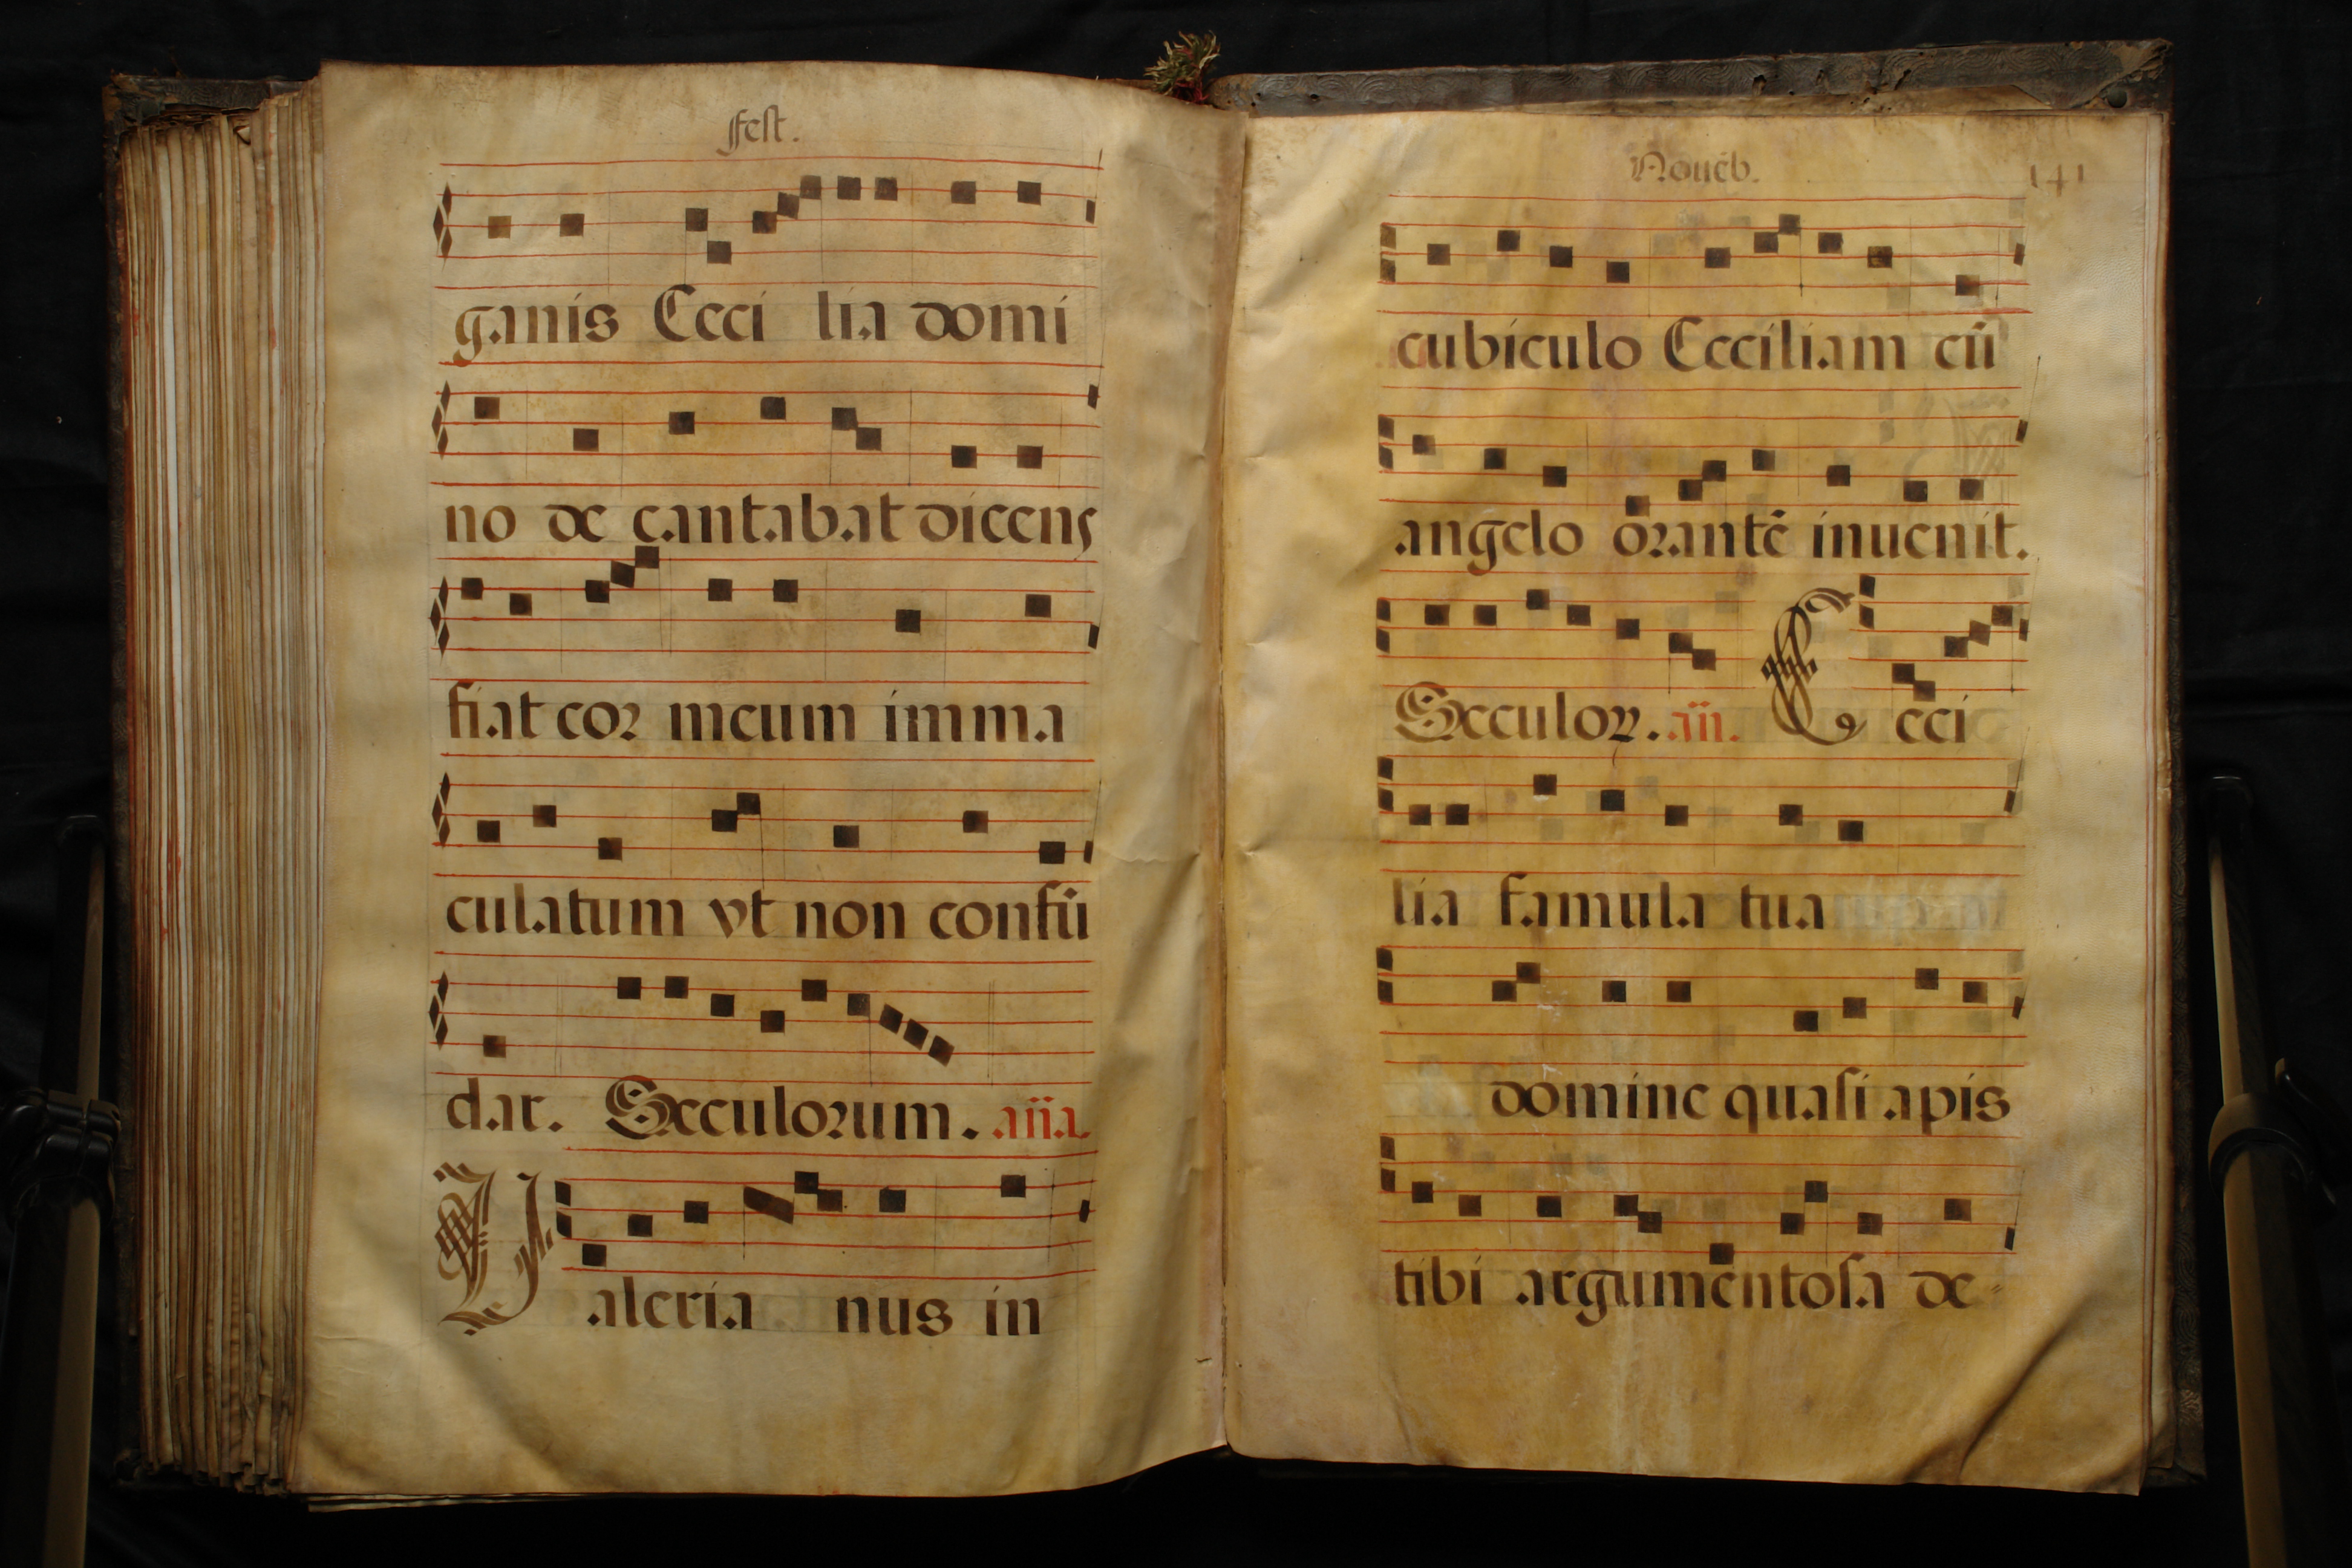 fest.
ganis Ceci lia domi
no de cantabat dicens
fiat cor meum imma
culatum vt non confũ
dar. Seculorum. aña.
Valeria nus in
Nouẽb. 141
cubiculo Ceciliam cũ
angelo orantẽ inuenit.
Seculoꝝ. añ. Ceci
lia famula tua
domine quasi apis
tibi argumentosa de-